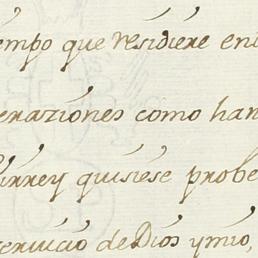 iempo que residiere en
eraziones como han
irrey quisiese probe
ervicio de Dios y mio,